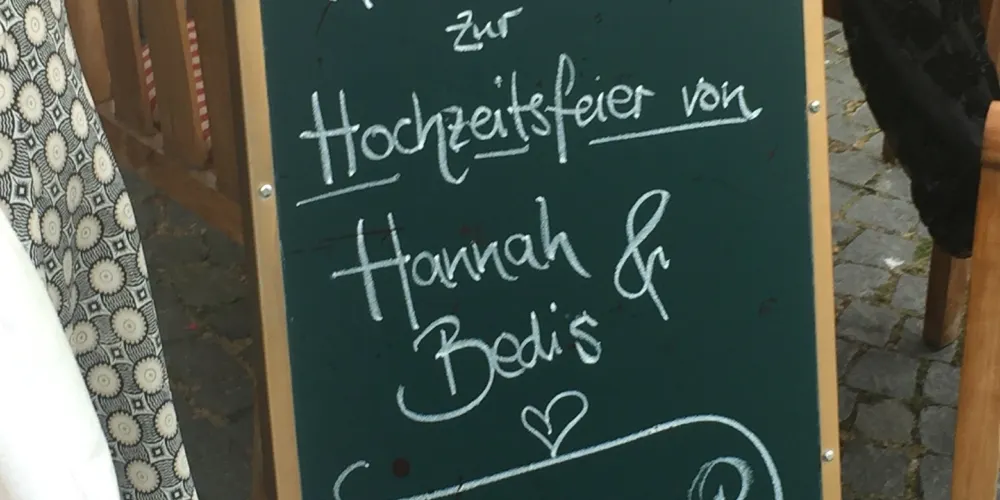 zur
Hochzeitsfeier von
Hannah &
Bedis